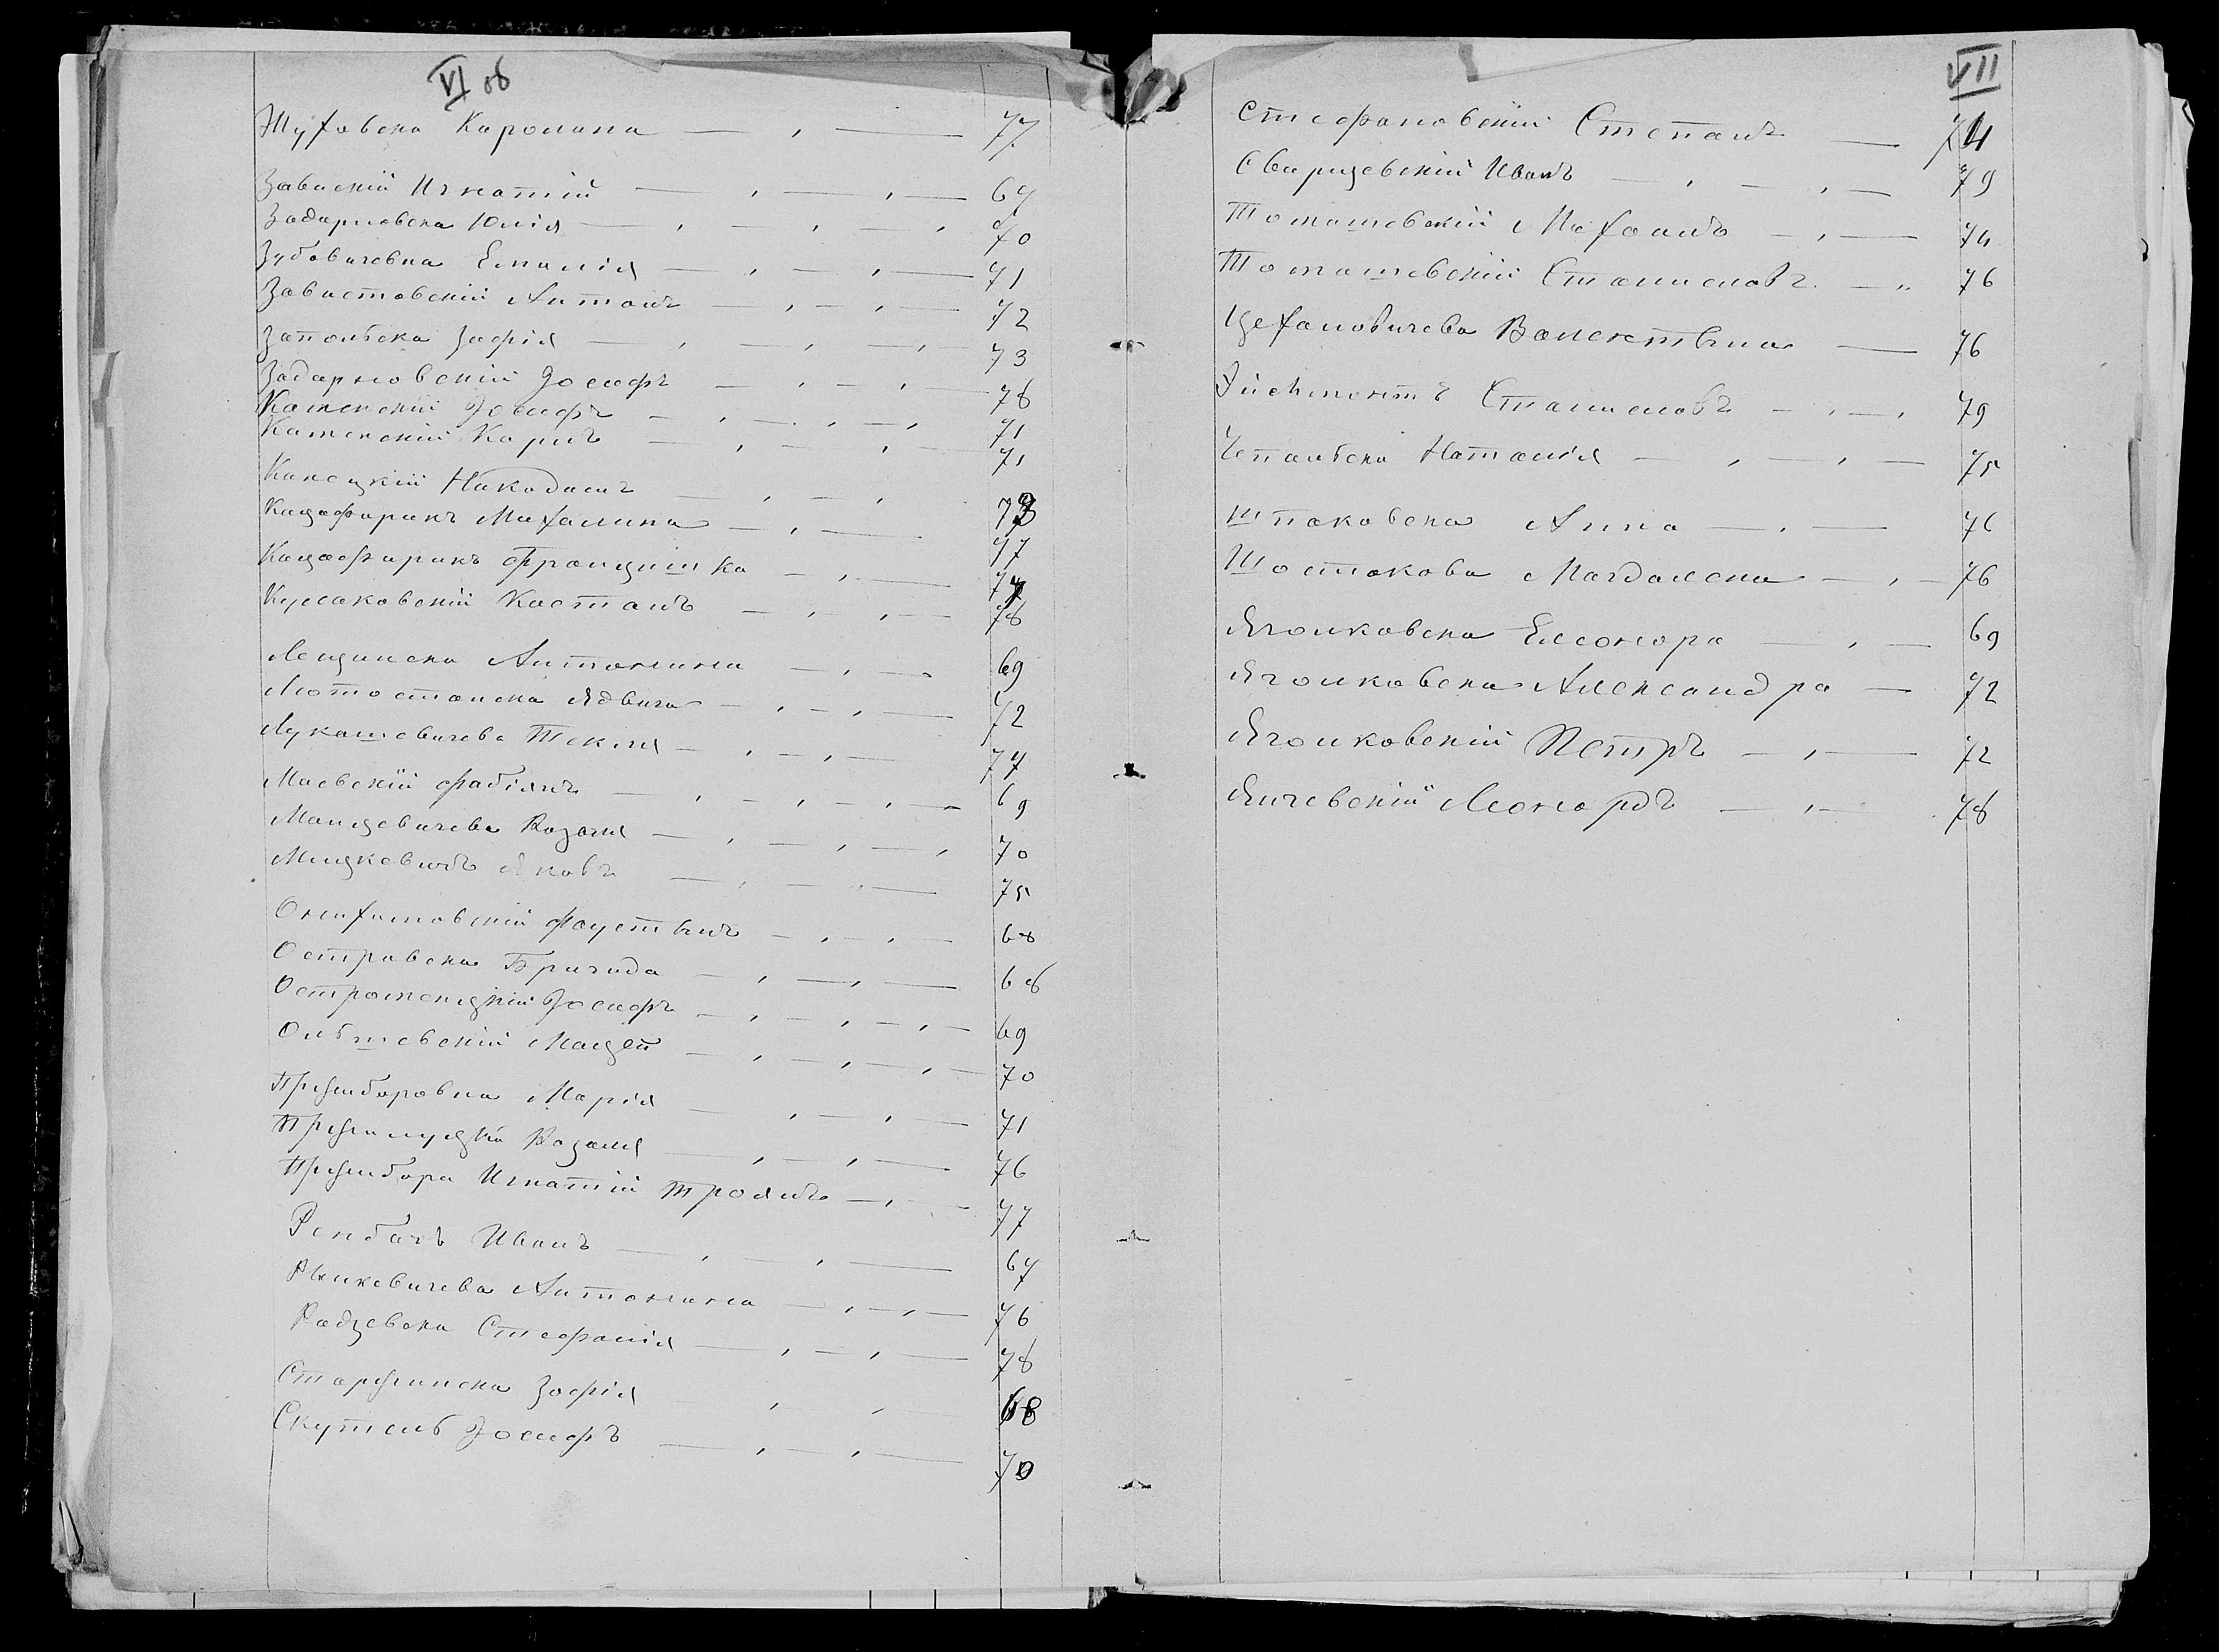 VI об
Жуховска Каролина — , — 77
Завиский Игнатій — , — , — 67
Задарновска Юлія — , — , — , 70
Зубовичевна Емилія — , — , — 71
Завистовскій Антонъ — , — , — 72
Запольска Зофія — , — , — , 73
Задарновскій Іосифъ — , — , — 78
Каменскій Іосифъ — , — , — , 71
Каменскій Карлъ — , — , 71
Канецкій Никодимъ — , — , 73
Кацафирикъ Михалина — , — 77
Кацафирикъ Францишка — , — 77
Кулаковскій Каетанъ — , — , — 78
Лещинска Антонина — , — 69
Лютостанска Ядвига — , — , — 72
Лукашевичева Текля — , — , — 74
Маевскій Фабіянъ — , — , — , — 69
Манцевичева Розалія — , — , — , 70
Мицкевичъ Яковъ — , — , — 75
Онихимовскій Фаустынъ — , — , — 68
Островска Бригида — , — , — 68
Остроменцкій Іосифъ — , — , — , — 69
Ольшевскій Мацей — , — , — , — 70
Пржиборовна Марія — , — , — 71
Пржилуцка Розалія — , — , — 76
Пржибора Игнатій Троянъ — , — 77
Рембачъ Иванъ — , — , — 67
Рынкевичева Антонина — , — , — 76
Радзевска Стефанія — , — , — 78
Старжинска Зофія — , — , — 68
Скутель Іосифъ — , — , — 70
VII
Стефановскій Степанъ — 74
Свирщевскій Иванъ — , — , — 79
Томашевскій Михаилъ — , — 74
Томашевскій Станиславъ — „ 76
Цехановичева Валентына — 76
Эйсмонтъ Станиславъ — , — , 79
Чепальска Наталія — , — , — 75
Шпаковска Анна — , — 76
Шостакова Магдалена — , — 76
Яголковска Елеонора — , — 69
Яголковска Александра — 72
Яголковскій Петръ — , — 72
Яичевскій Леонардъ — , — 78